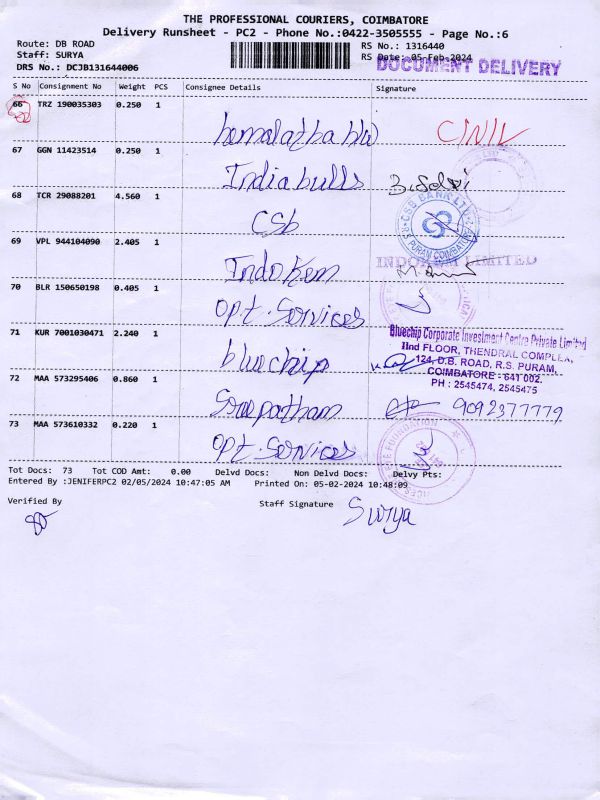 THE PROFESSIONAL COURIERS, COIMBATORE
Delivery Runsheet - PC2 - Phone No.:0422-3505555 - Page No.:6
Route: DB ROAD
Staff: SURYA
DRS No.: DCJB131644006
RS No.: 1316440
RS Date: 05-Feb-2024
DOCUMENT DELIVERY
S No Consignment No Weight PCS Consignee Details Signature
66 TRZ 190035303 0.250 1
hemalatha
67 GGN 11423514 0.250 1
Indiabulls
68 TCR 29088201 4.560 1
CSb
CSB BANK LTD
R.S. PURAM COIMBATORE
69 VPL 944104090 2.405 1
IndoKem
LIMITED
70 BLR 150650198 0.405 1
Opt. Services
71 KUR 7001030471 2.240 1
bluechip
Bluechip Corporate Investment Centre Private Limited
IInd FLOOR, THENDRAL COMPLEX,
124, D.B. ROAD, R.S. PURAM,
COIMBATORE - 641 002.
PH : 2545474, 2545475
72 MAA 573295406 0.860 1
9092377779
73 MAA 573610332 0.220 1
Opt. Services
FOUNDATION
Tot Docs: 73 Tot COD Amt: 0.00 Delvd Docs: Non Delvd Docs: Delvy Pts:
Entered By :JENIFERPC2 02/05/2024 10:47:05 AM Printed On: 05-02-2024 10:48:09
Verified By
Staff Signature
Surya